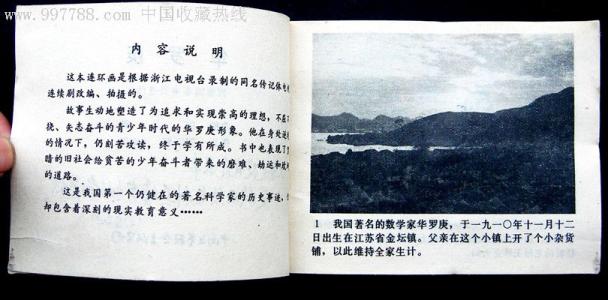 www.997788.com 中国收藏热线
内容说明
这本连环画是根据浙江电视台录制的同名传记体电视
连续剧改编、拍摄的。
故事生动地塑造了为追求和实现崇高的理想，不屈
挠、矢志奋斗的青少年时代的华罗庚形象。他在身处
的情况下，仍刻苦攻读，终于学有所成。书中也表现了
暗的旧社会给贫苦的少年奋斗者带来的磨难、劫运和
的道路。
这是我国第一个仍健在的著名科学家的历史事迹，
却包含着深刻的现实教育意义……
1 我国著名的数学家华罗庚，于一九一〇年十一月十二
日出生在江苏省金坛镇。父亲在这个小镇上开了个小杂货
铺，以此维持全家生计。